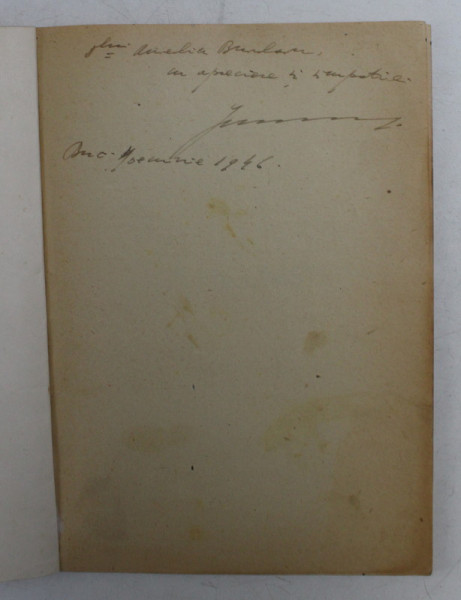 Amelia Burlan,
cu apreciere și simpatie.
Buc. Noemvrie 1946.